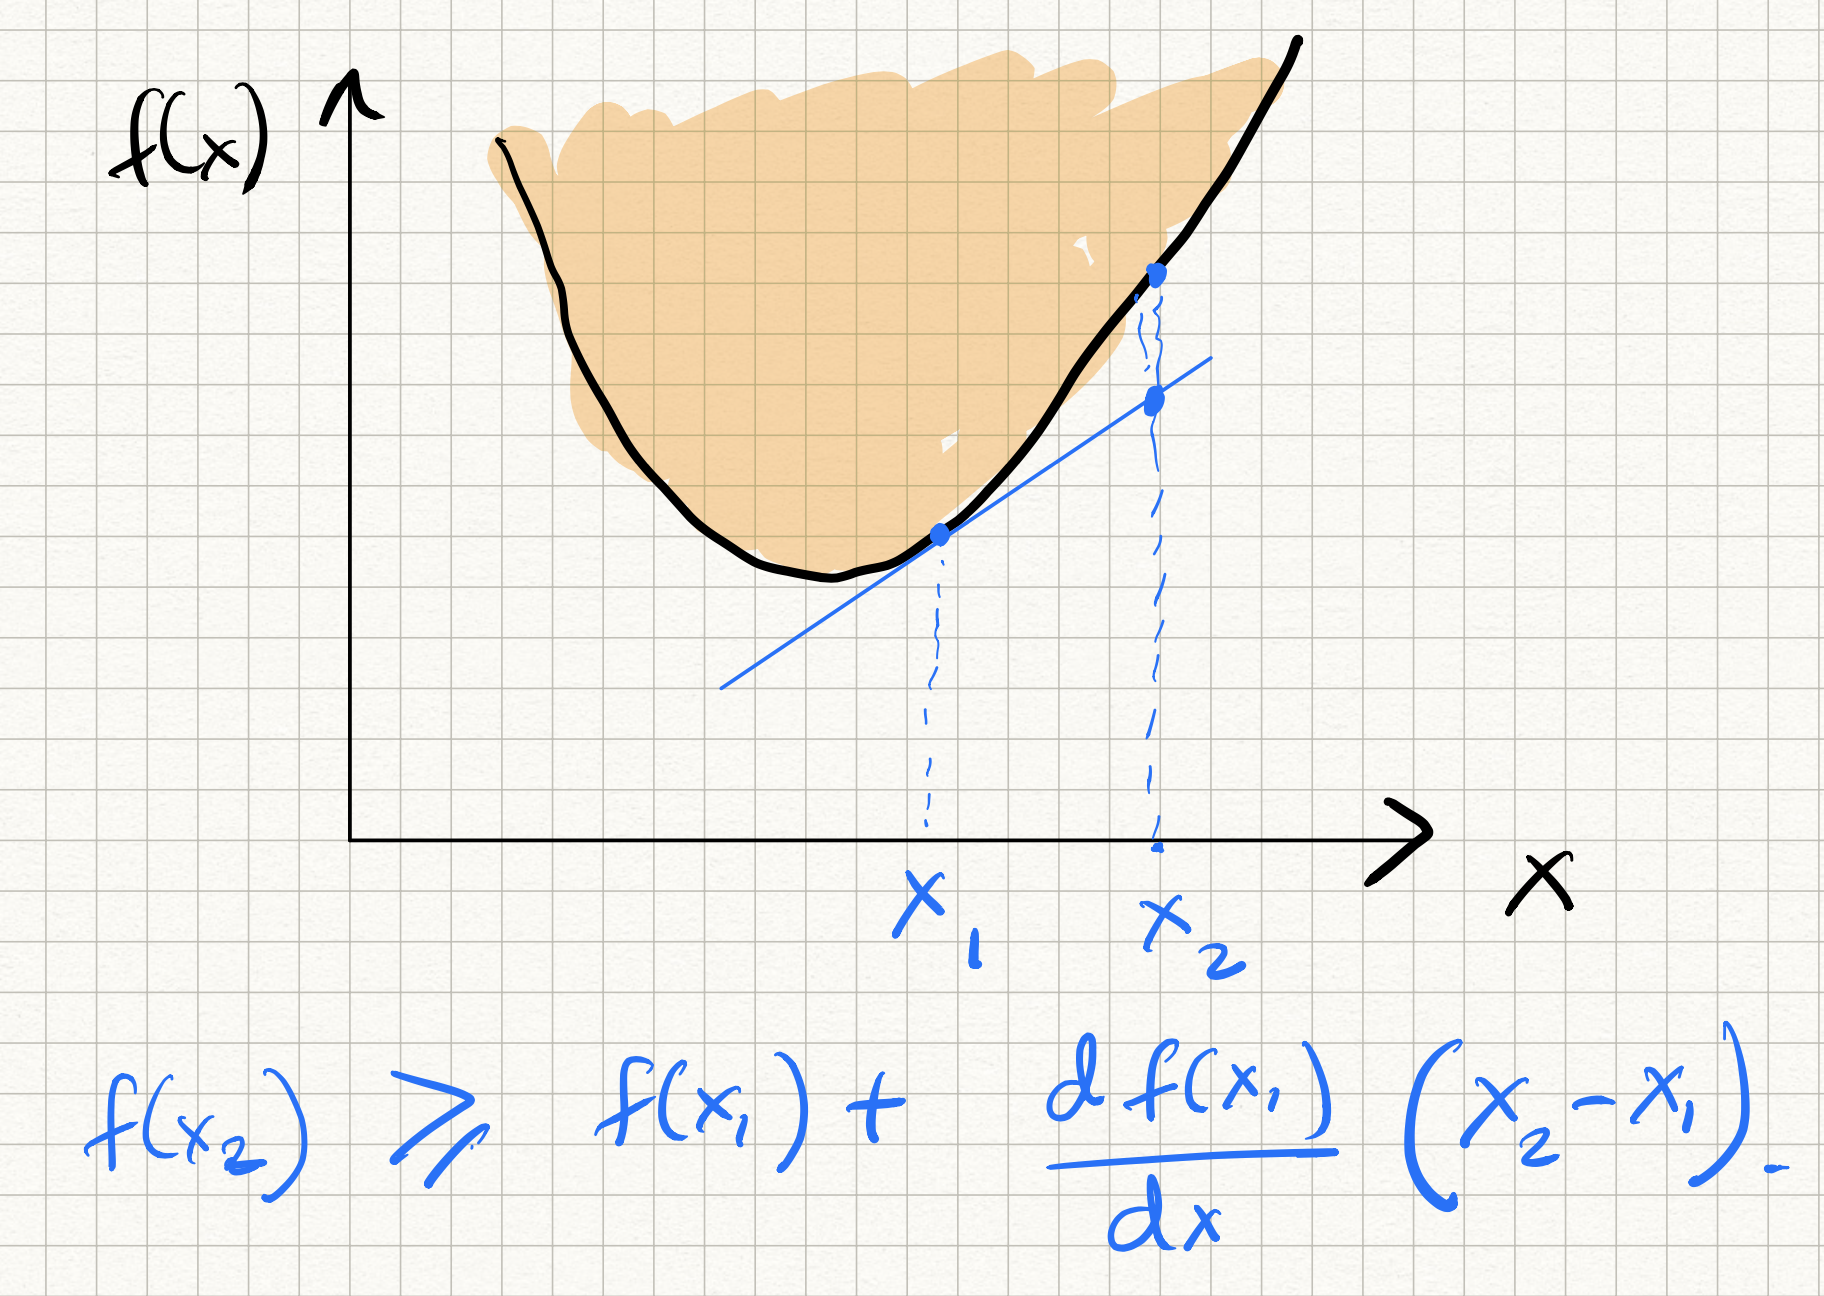 f(x)
x
x₁
x₂
f(x₂) ⩾ f(x₁) + df(x₁)/dx (x₂ - x₁).